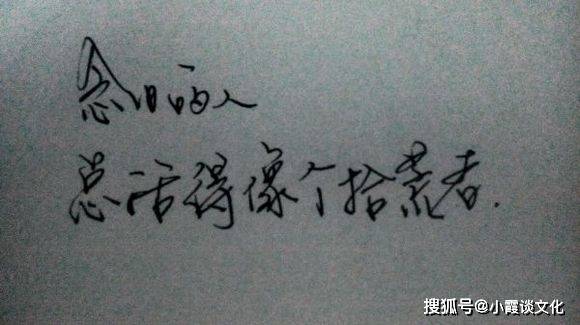 念旧的人
总活得像个拾荒者.
搜狐号@小霞谈文化